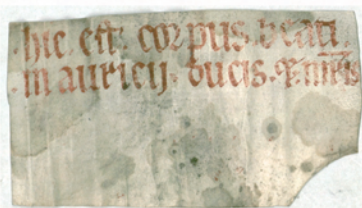 hic · est · corpus · beati
mauricij · ducis · et · mris